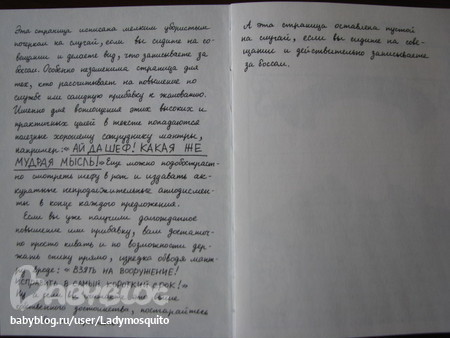 Эта страница исписана мелким убористым
почерком на случай, если вы сидите на со-
вещании и делаете вид, что записываете за
боссом. Особенно незаменима страница для
тех, кто рассчитывает на повышение по
службе или солидную прибавку к жалованию.
Именно для воплощения этих высоких и
практичных целей в тексте попадаются
полезные хорошему сотруднику мантры,
например: « АЙ ДА ШЕФ! КАКАЯ ЖЕ
МУДРАЯ МЫСЛЬ!» Еще можно подобостраст-
но смотреть шефу в рот и издавать ак-
куратные непродолжительные аплодисмен-
ты в конце каждого предложения.
Если вы уже получили долгожданное
повышение или прибавку, вам достаточ-
но просто кивать и по возможности дер-
жать спину прямо, изредка обводя мант-
вроде: « ВЗЯТЬ НА ВООРУЖЕНИЕ!
В САМЫЙ КОРОТКИЙ СРОК!»
достоинства, постарайтесь
А эта страница оставлена пустой
на случай, если вы сидите на сове-
щании и действительно записываете
за боссом.
BABYBLOG
babyblog.ru/user/Ladymosquito